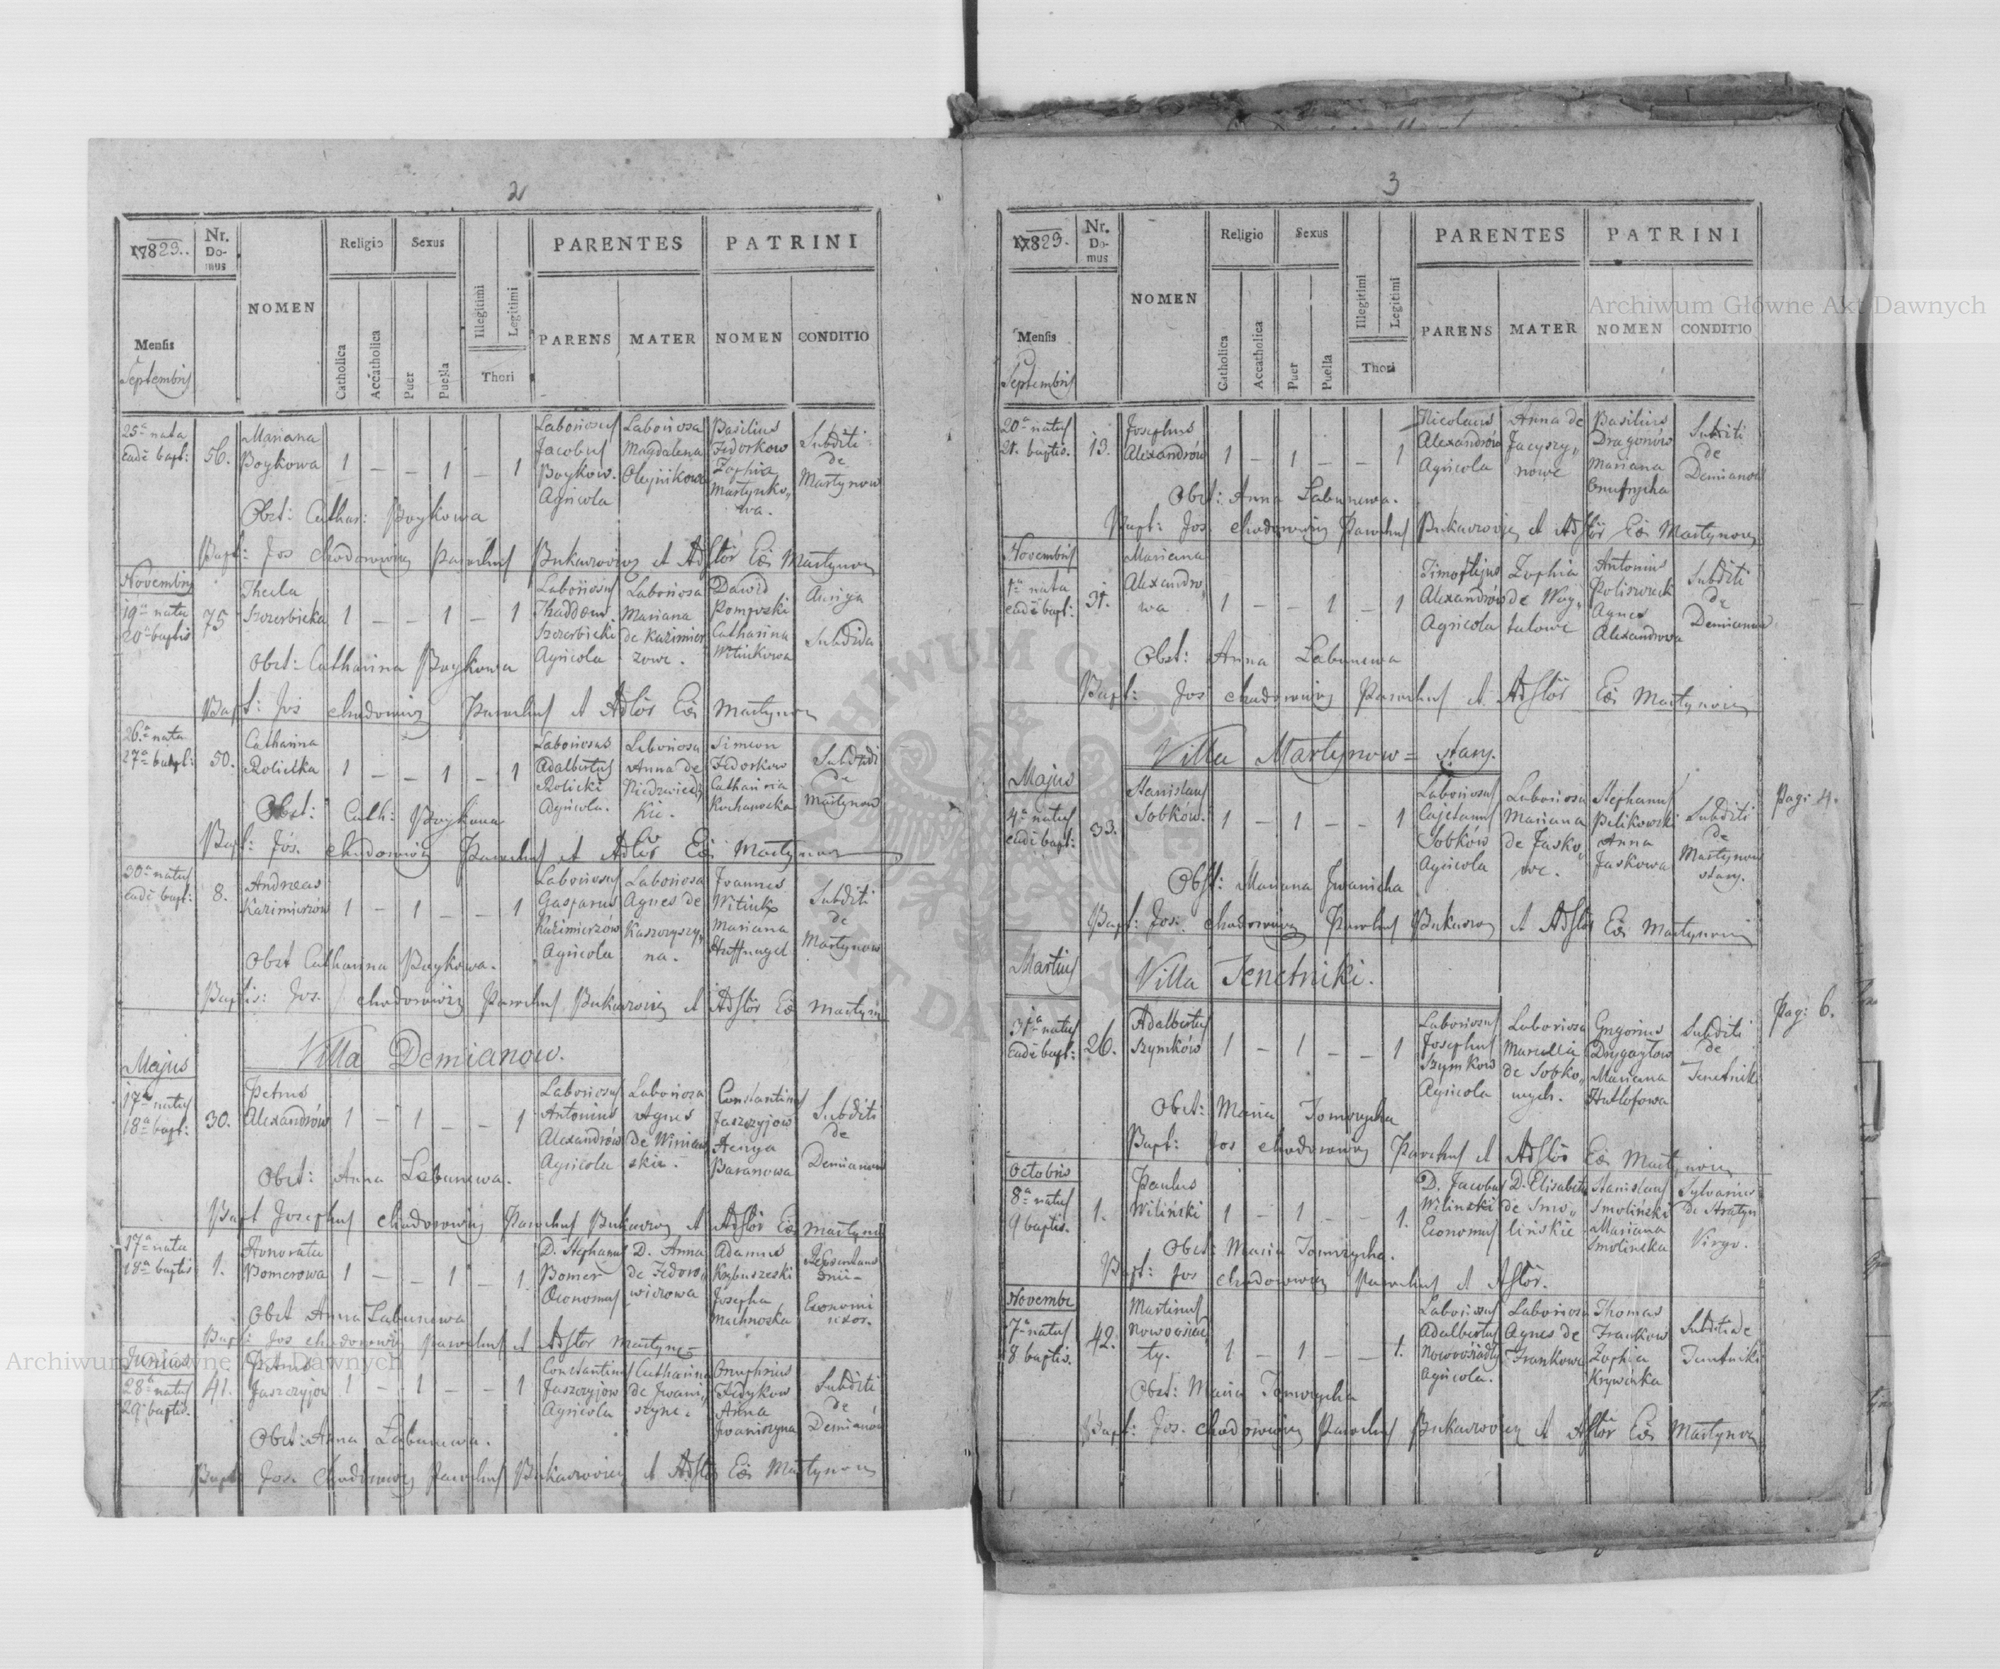 2
17829.
Nr. Domus
NOMEN
Religio
Sexus
PARENTES
PATRINI
Mensis
Septembris
Catholica
Accatholica
Puer
Puella
Illegitimi
Legitimi
Thori
PARENS
MATER
NOMEN
CONDITIO
25a nata
Eadē bapt:
56.
Mariana
Boykowa
1 — — 1 — 1
Laboriosus
Jacobus
Boykow.
Agricola
Laboriosa
Magdalena
Olejnikowa
Basilius
Fedorkow
Zophia
Martynko„
wa.
Subditi
de
Martynow
Obst: Cathar: Boykowa
Bapt: Jos Chodorowicz Parochus Bukaczoviec et Adstōr Eccē Martynow
Novembris
19a nata
20a baptis
75
Thecla
Szczerbicka
1 — — 1 — 1
Laboriosus
Thaddeus
Szczerbicki
Agricola
Laboriosa
Mariana
de Kazimier
zowe.
Dawid
Catharina
Witiukowa
Auriga
Subdita
Obst: Catharina Boykowa
Bapt: Jos Chodorowicz Parochus et Adstōr Eccē Martynow
26a nata
27a bapt:
50.
Catharina
Rolicka
1 — — 1 — 1
Laboriosus
Adalbertus
Rolicki
Agricola.
Laboriosa
Anna de
Niedzwiedz
kie.
Simeon
Fedorkow
Catharina
Kochanocka
Subditi
de
Martynow
Obst: Cath: Boykowa
Bapt: Jos. Chodorowicz Parochus et Adstōr Eccē Martynow
30a natus
eadē bapt:
8.
Andreas
Kazimierzów
1 — 1 — — 1
Laboriosus
Gasparus
Kazimierzów
Agricola
Laboriosa
Agnes de
na.
Joannes
Witiuk
Mariana
Huffnagel
Subditi
de
Martynow
Obst Catharina Boykowa.
Baptis: Jos. Chodorowicz Parochus Bukaczowiec et Adstōr Eccē Martyn
Villa Demianow.
Majus
17a natus
18a bapt:
30.
Petrus
Alexandrów
1 — 1 — — 1
Laboriosus
Antonius
Alexandrów
Agricola
Laboriosa
Agnes
de Winiaw
skie.
Constantinus
Jaszczyjow
Henya
Baranowa
Subditi
de
Demianow
Obst: Anna Labunewa.
Bapt Josephus Chodorowicz Parochus Bukaczow et Adstōr Eccē Martynow
17a nata
18a baptis
1.
Honorata
Bomerowa
1 — — 1 — 1
D. Stephanus
Bomer
Oeconomus
D. Anna
de Fedoro„
wiczowa
Adamus
Krzbuszeski
Josepha
Machnoska
Economi
uxor.
Obst Anna Labunewa
Bapt: Jos Chodorowicz Parochus et Adstor Martyne
Junius
28a natus
29a baptis.
41.
Petrus
Jaszczyjow
1 — 1 — — 1
Constantinus
Jaszczyjow
Agricola
Catharina
de Jwani„
szyne.
Onuphrius
Fedykow
Anna
Jwaniszyna
Subditi
de
Demianów
Obst: Anna Labunewa.
Bapt Jos. Chodorowicz Parochus Bukaczoviec et Adstōr Eccē Martynow
3
17829.
Nr. Domus
NOMEN
Religio
Sexus
PARENTES
PATRINI
Mensis
Septembris
Catholica
Accatholica
Puer
Puella
Illegitimi
Legitimi
Thori
PARENS
MATER
NOMEN
CONDITIO
20a natus
21. baptis.
13.
Josephus
Alexandrów
1 — 1 — — 1
Nicolaus
Alexandrów
Agricola
Anna de
Jacyszy„
nowe
Basilius
Dragonów
Mariana
Onufrycha
Subditi
de
Demianow
Obst: Anna Labunewa.
Bapt: Jos. Chodorowicz Parochus Bukaczoviec et Adstōr Eccē Martynow
Novembris
1a nata
eadē bapt:
31.
Mariana
Alexandro„
wa
1 — — 1 — 1
Timoftejus
Alexandrów
Agricola
Zophia
de Woy„
tulowe
Antonius
Agnes
Alexandrowa
Subditi
de
Demianow
Obst: Anna Labunewa
Bapt: Jos Chodorowicz Parochus et Adstōr Eccē Martynow
Villa Martynow = stary.
Majus
4a natus
eadē bapt:
33.
Stanislaus
Sobków.
1 — 1 — — 1
Laboriosus
Cajetanus
Sobków
Agricola
Laboriosa
Mariana
de Jasko„
we.
Stephanus
Pelikowski
Anna
Jaskowa
Subditi
de
Martynow
stary.
Pag: 4.
Obst: Mariana Jwanicha
Bapt: Jos: Chodorowicz Parochus Bukaczow et Adstōr Eccē Martynow
Martius
Villa Tenetniki.
Pag: 6.
31a natus
eadē bapt:
26.
Adalbertus
Szymków
1 — 1 — — 1
Laboriosus
Josephus
Szymkow
Agricola
Laboriosa
Marcella
de Sobko„
wych.
Gregorius
Mariana
Hutlofowa
Subditi
de
Tenetniki
Obst: Maria Tomczycha
Bapt: Jos Chodorowicz Parochus et Adstōr Eccē Martynow
Octobris
8a natus
9 baptis.
1.
Paulus
Wiliński
1 — 1 — — 1.
D. Jacobus
Wilinski
Economus
D. Elisabeth
de Smo„
lińskie
Stanislaus
Smoliński
Mariana
Smolinska
Sylvanius
De Stratyn
Virgo.
Obst: Maria Tomczycha.
Bapt: Jos Chodorowicz Parochus et Adstōr.
Novembr
7a natus
8 baptis.
42.
Martinus
Nowosiad„
ty.
1 — 1 — — 1.
Laboriosus
Adalbertus
Nowosiadly
Agricola.
Laboriosa
Agnes de
Frankowe
Thomas
Frankow
Zophia
Krywinka
Subditi de
Tenetniki
Obst: Maria Tomczycha
Bapt: Jos. Chodorowicz Parochus Bukaczoviec et Adstōr Eccē Martynow
Archiwum Główne Akt Dawnych
Archiwum Główne Akt Dawnych
ARCHIWUM GŁÓWNE AKT DAWNYCH